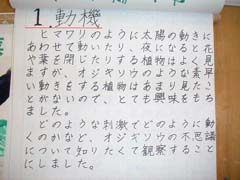 1.動機
ヒマワリのように太陽の動きに
あわせて動いたり、夜になると花
や葉を閉じたりする植物はよく見
ますが、オジギソウのような素早
い動きをする植物はあまり見たこ
とがないので、とても興味をもち
ました。
どのような刺激でどのように動
くのかなど、オジギソウの不思議
について知りたくて観察すること
にしました。